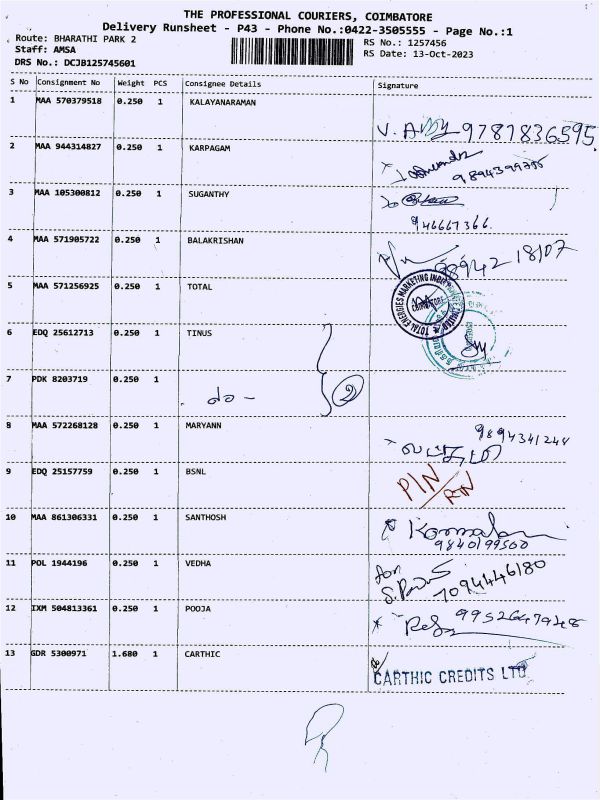 THE PROFESSIONAL COURIERS, COIMBATORE
Delivery Runsheet - P43 - Phone No.:0422-3505555 - Page No.:1
Route: BHARATHI PARK 2
RS No.: 1257456
Staff: AMSA
RS Date: 13-Oct-2023
DRS No.: DCJB125745601
S No Consignment No Weight PCS Consignee Details Signature
1 MAA 570379518 0.250 1 KALAYANARAMAN
9787836595
2 MAA 944314827 0.250 1 KARPAGAM
3 MAA 105300812 0.250 1 SUGANTHY
946667366
4 MAA 571905722 0.250 1 BALAKRISHAN
98942 18107
5 MAA 571256925 0.250 1 TOTAL
TOTAL ENERGIES MARKETING INDIA
COIMBATORE
6 EDQ 25612713 0.250 1 TINUS
7 PDK 8203719 0.250 1
- do - 2
8 MAA 572268128 0.250 1 MARYANN
9894341244
9 EDQ 25157759 0.250 1 BSNL
PIN/RN
10 MAA 861306331 0.250 1 SANTHOSH
9840199500
11 POL 1944196 0.250 1 VEDHA
for
7094446180
12 IXM 504813361 0.250 1 POOJA
9952647948
13 GDR 5300971 1.680 1 CARTHIC
CARTHIC CREDITS LTD